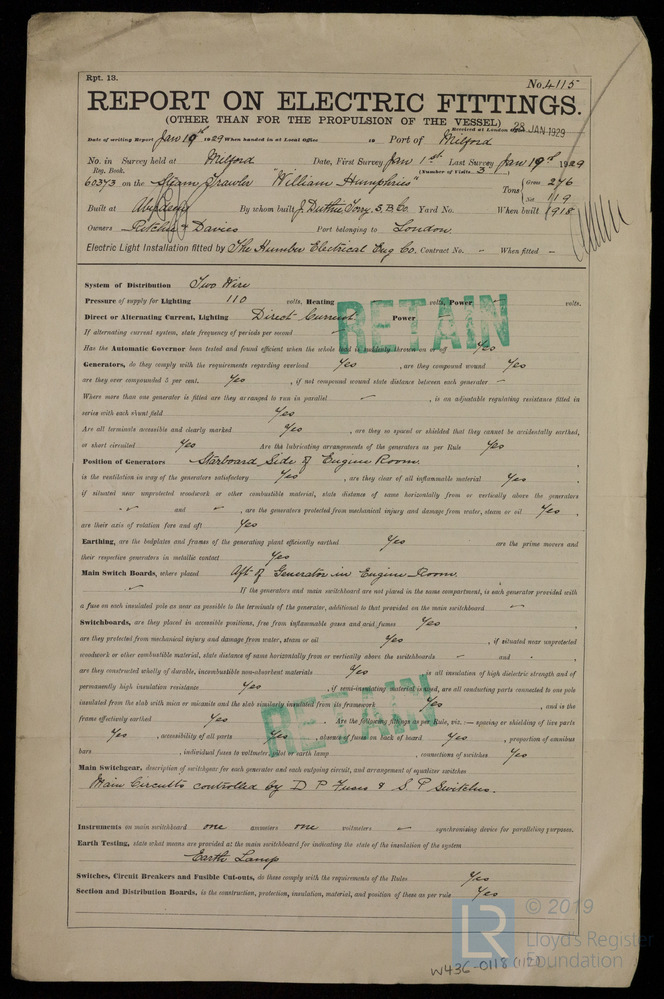 Rpt. 13.
No. 4115
REPORT ON ELECTRIC FITTINGS.
(OTHER THAN FOR THE PROPULSION OF THE VESSEL)
Received at London 23 JAN 1929
Date of writing Report Jan 19th 1929 When handed in at Local Office 19 Port of Milford
No. in Survey held at Milford Date, First Survey Jan 1st Last Survey Jan 19th 1929
Reg. Book. (Number of Visits 3)
60373 on the Steam Trawler "William Humphries" Tons Gross 276 Net 119
Built at Aberdeen By whom built J. Duthie Torry S. B. Co. Yard No. When built 1918
Owners Ritchie & Davies Port belonging to London
Electric Light Installation fitted by The Humber Electrical Eng Co. Contract No. – When fitted –
System of Distribution Two Wire
Pressure of supply for Lighting 110 volts, Heating volts, Power – volts.
Direct or Alternating Current, Lighting Direct Current Power
RETAIN
If alternating current system, state frequency of periods per second
Has the Automatic Governor been tested and found efficient when the whole load is suddenly thrown on or off Yes
Generators, do they comply with the requirements regarding overload Yes, are they compound wound Yes
are they over compounded 5 per cent. Yes, if not compound wound state distance between each generator –
Where more than one generator is fitted are they arranged to run in parallel –, is an adjustable regulating resistance fitted in
series with each shunt field Yes
Are all terminals accessible and clearly marked Yes, are they so spaced or shielded that they cannot be accidentally earthed,
or short circuited Yes Are the lubricating arrangements of the generators as per Rule Yes
Position of Generators Starboard Side of Engine Room
is the ventilation in way of the generators satisfactory Yes, are they clear of all inflammable material Yes
if situated near unprotected woodwork or other combustible material, state distance of same horizontally from or vertically above the generators
– and –, are the generators protected from mechanical injury and damage from water, steam or oil Yes,
are their axis of rotation fore and aft Yes
Earthing, are the bedplates and frames of the generating plant efficiently earthed Yes are the prime movers and
their respective generators in metallic contact Yes
Main Switch Boards, where placed Aft of Generator in Engine Room.
– If the generators and main switchboard are not placed in the same compartment, is each generator provided with
a fuse on each insulated pole as near as possible to the terminals of the generator, additional to that provided on the main switchboard –
Switchboards, are they placed in accessible positions, free from inflammable gases and acid fumes Yes
are they protected from mechanical injury and damage from water, steam or oil Yes, if situated near unprotected
woodwork or other combustible material, state distance of same horizontally from or vertically above the switchboards – and –,
are they constructed wholly of durable, incombustible non-absorbent materials Yes is all insulation of high dielectric strength and of
permanently high insulation resistance Yes, if semi-insulating material is used, are all conducting parts connected to one pole
insulated from the slab with mica or micanite and the slab similarly insulated from its framework Yes, and is the
RETAIN
frame effectively earthed Yes. Are the following fittings as per Rule, viz.:— spacing or shielding of live parts
Yes, accessibility of all parts Yes, absence of fuses on back of board Yes, proportion of omnibus
bars, individual fuses to voltmeter, pilot or earth lamp, connections of switches Yes
Main Switchgear, description of switchgear for each generator and each outgoing circuit, and arrangement of equalizer switches
Main Circuits controlled by D P Fuses & S P Switches.
Instruments on main switchboard one ammeters one voltmeters – synchronising device for paralleling purposes.
Earth Testing, state what means are provided at the main switchboard for indicating the state of the insulation of the system
Earth Lamp
Switches, Circuit Breakers and Fusible Cut-outs, do these comply with the requirements of the Rules Yes
Section and Distribution Boards, is the construction, protection, insulation, material, and position of these as per rule Yes
© 2019
LR
Lloyd's Register
Foundation
W436-0118 (1/2)